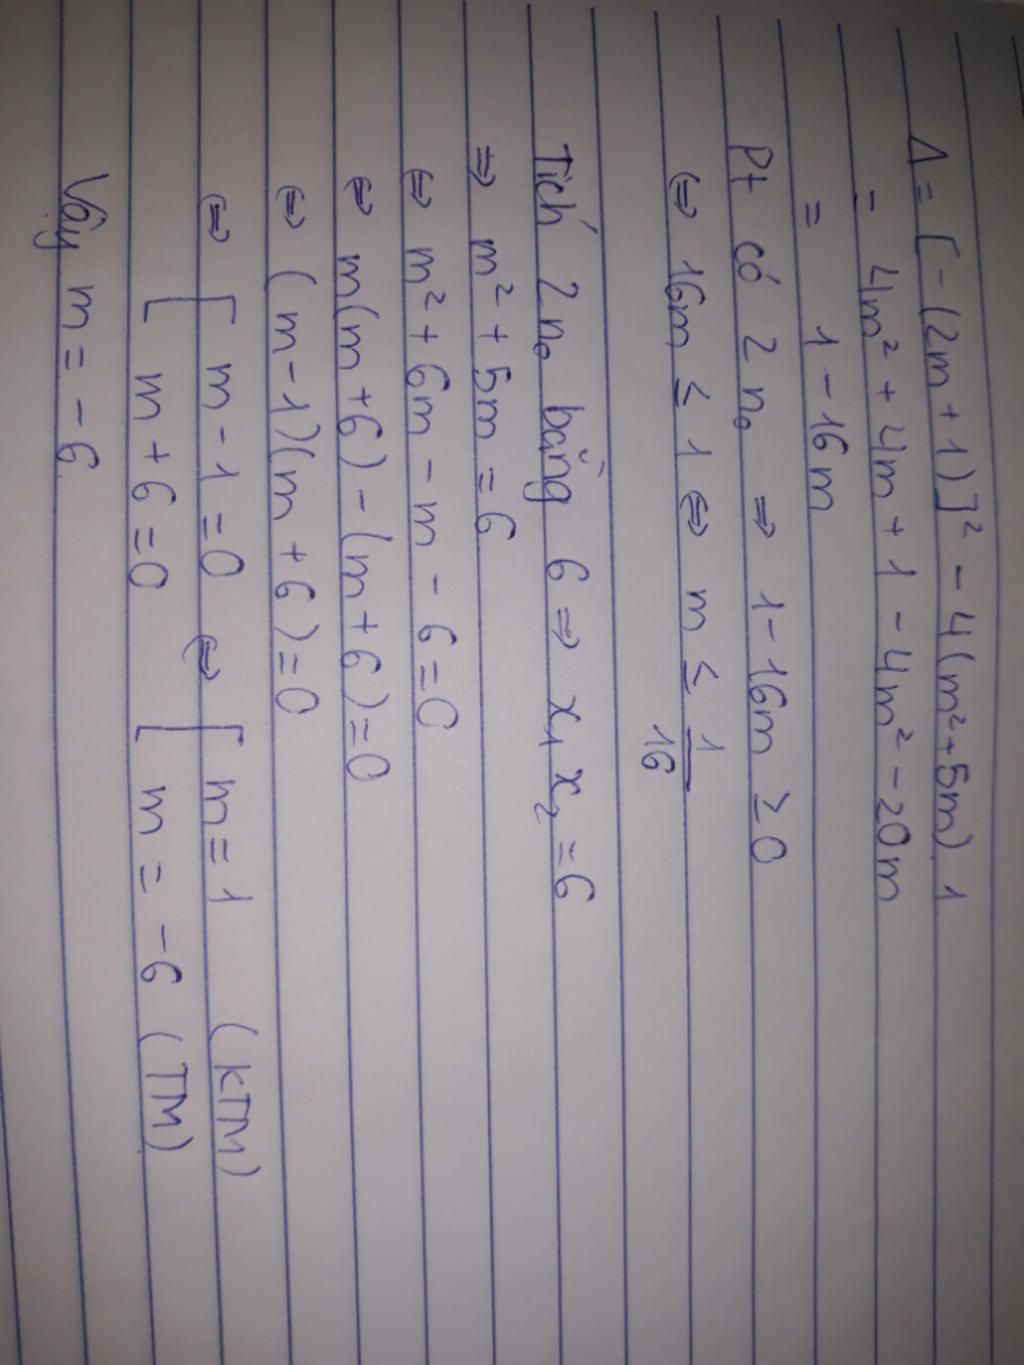 Δ = [-(2m+1)]² - 4(m²+5m) 1
= 4m² + 4m + 1 - 4m² - 20m
= 1 - 16m
Pt có 2 no ⇒ 1 - 16m ≥ 0
⇔ 16m ≤ 1 ⇔ m ≤ 1/16
Tích 2 no bằng 6 ⇒ x₁ x₂ = 6
⇒ m² + 5m = 6
⇔ m² + 6m - m - 6 = 0
⇔ m(m+6) - (m+6) = 0
⇔ (m-1)(m+6) = 0
⇔ [ m - 1 = 0 ⇔ [ m = 1 (KTM)
[ m + 6 = 0 [ m = -6 (TM)
Vậy m = -6